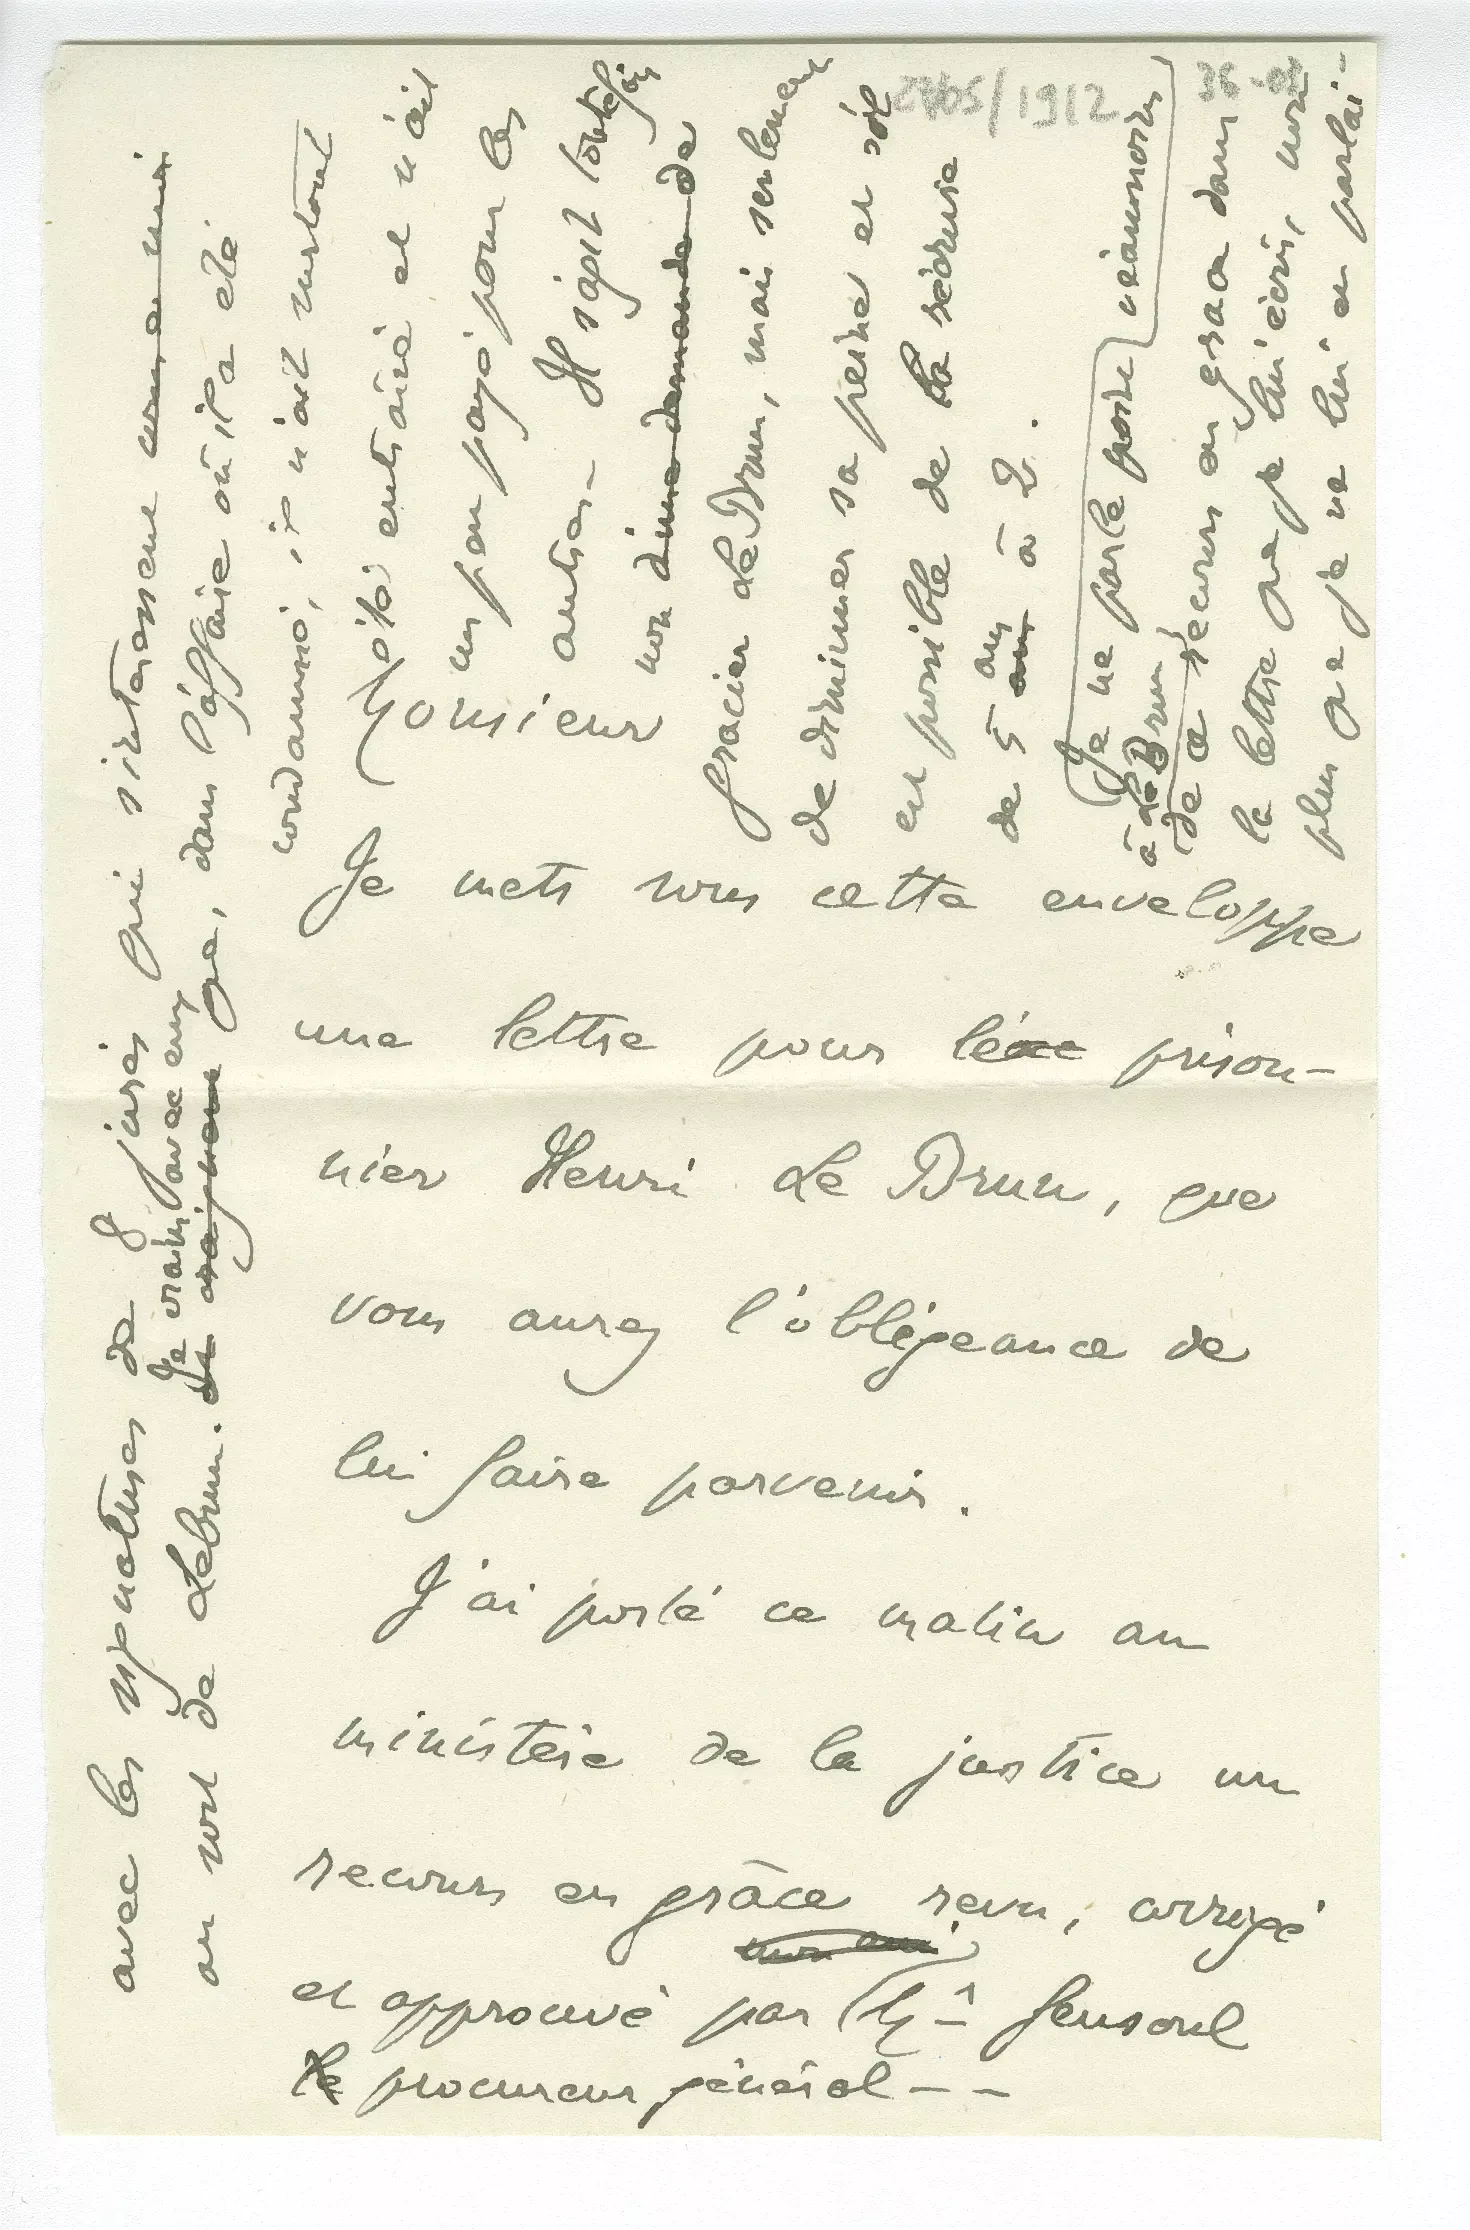 2405/1912
Monsieur
Je mets sous cette enveloppe
une lettre pour le prison-
nier Henri Le Brun, que
vous aurez l'obligeance de
lui faire parvenir.
J'ai porté ce matin au
ministère de la justice un
recours en grâce revu, corrigé
et approuvé par Mr Gensoul
le procureur général - -
avec les signatures de 8 jurés qui s'intéressent comme moi
au sort de Lebrun. Je crains avec eux que, dans l'affaire où il a été
condamné, il n'ait surtout
été entraîné et n'ait
un peu payé pour les
autres - Il s'agit toutefois
non d'une demande de
gracier Le Brun, mais seulement
de diminuer sa peine et s'il
est possible de la réduire
de 5 ans à 2.
Je ne parle point néanmoins
à Le Brun
de ce recours en grace dans
la lettre que je lui écris, non
plus que je ne lui en parlai -